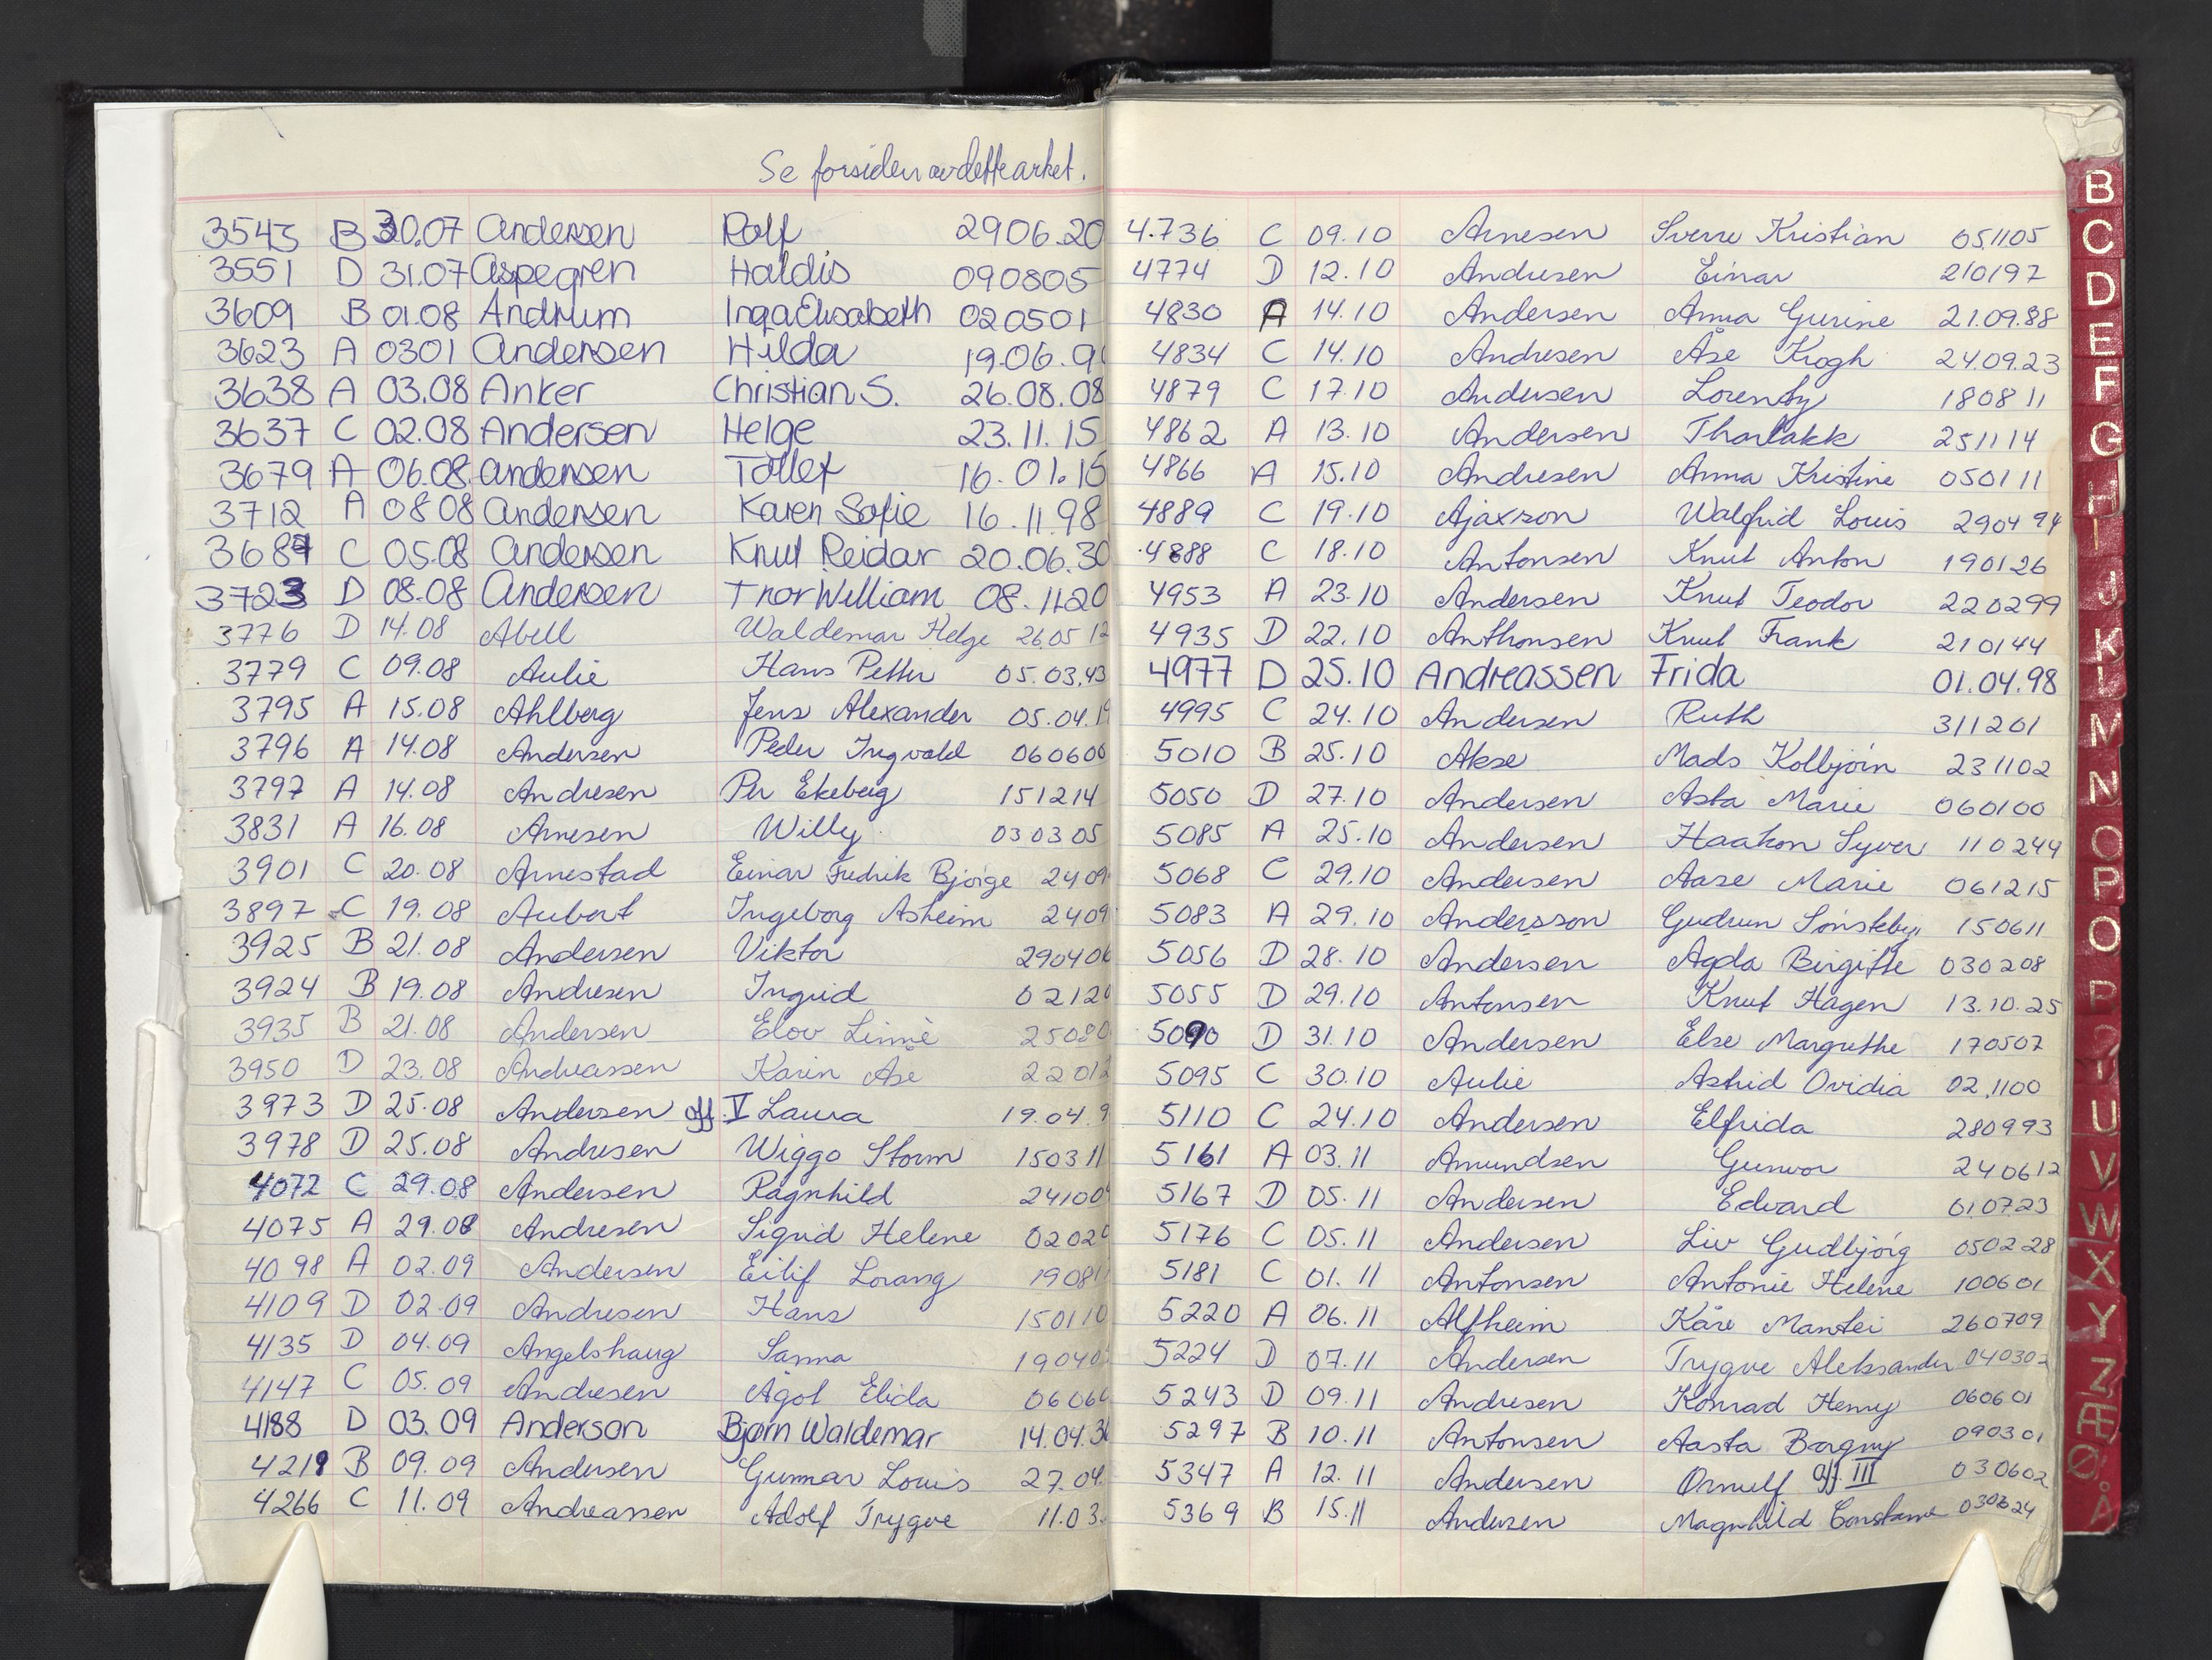 Se forsiden av dette arket.
3545 B 30.07 Andersen Rolf 2906.20
3551 D 31.07 Aspegren Haldis 090805
3609 B 01.08 Andrum Inga Elisabeth 020501
3623 A 0301 Andersen Hilda 19.06.9
3638 A 03.08 Anker Christian S. 26.08.08
3637 C 02.08 Andersen Helge 23.11.15
3679 A 06.08 Andersen Tollef 16.01.15
3712 A 0808 Andersen Karen Sofie 16.11.98
368 C 05.08 Andersen Knut Reidar 20.06.30
3723 D 08.08 Andersen Thor William 08.1120
3776 D 14.08 Abell Waldemar Helge 2605 12
3779 C 09.08 Aulie Hans Petter 05.03.43
3795 A 15.08 Ahlberg Jens Alexander 05.04.1
3796 A 14.08 Andersen Peder Ingvald 060600
3797 A 14.08 Andresen Per Ekeberg 151214
3831 A 16.08 Arnesen Willy 030305
3901 C 20.08 Arnestad Einar Fredrik Bjørge 2409
3897 C 19.08 Aubert Ingeborg Asheim 2409
3925 B 21.08 Andersen Viktor 290406
3924 B 19.08 Andresen Ingrid 02120
3935 B 21.08 Andersen Elov Linné 25080
3950 D 23.08 Andreassen Karin Åse 22012
3973 D 25.08 Andersen aff. V Laura 19.04.9
3978 D 25.08 Andresen Wiggo Storm 150311
4072 C 29.08 Andersen Ragnhild 24100
4075 A 29.08 Andresen Sigrid Helene 02020
4098 A 02.09 Andersen Eilif Lorang 19081
4109 D 02.09 Andresen Hans 150110
4135 D 04.09 Angelshaug Sanna 19040
4147 C 05.09 Andresen Ågot Elida 0606
4188 D 03.09 Anderson Bjørn Waldemar 14.04.3
4219 B 09.09 Andersen Gunnar Louis 27.04.
4266 C 11.09 Andreassen Adolf Trygve 11.03.
4.736 C 09.10 Arnesen Sverre Kristian 051105
4774 D 12.10 Andresen Einar 210197
4830 A 14.10 Andersen Anna Gurine 21.09.88
4834 C 14.10 Andresen Åse Krogh 24.09.23
4879 C 17.10 Andersen Lorentz 180811
4862 A 13.10 Andersen Tharlakk 251114
4866 A 15.10 Andresen Anna Kristine 050111
4889 C 19.10 Ajaxson Walfrid Louis 290494
4888 C 18.10 Antonsen Knut Anton 190126
4953 A 23.10 Andersen Knut Teodor 220299
4935 D 22.10 Anthonsen Knut Frank 210144
4977 D 25.10 Andreassen Frida 01.04.98
4995 C 24.10 Andersen Ruth 311201
5010 B 25.10 Akse Mads Kolbjörn 231102
5050 D 27.10 Andersen Asta Marie 060100
5085 A 25.10 Andersen Haakon Syver 110244
5068 C 29.10 Andersen Aase Marie 061215
5083 A 29.10 Andersson Gudrun Sønsteby 150611
5056 D 28.10 Andersen Agda Birgitte 030208
5055 D 29.10 Antonsen Knut Hagen 13.10.25
5090 D 31.10 Andersen Else Margrethe 170507
5095 C 30.10 Aulie Astrid Ovidia 02.1100
5110 C 24.10 Andersen Elfrida 280993
5161 A 03.11 Amundsen Gunvor 240612
5167 D 05.11 Andersen Edvard 01.07.23
5176 C 05.11 Andersen Liv Gudbjörg 050228
5181 C 01.11 Antonsen Antonie Helene 100601
5220 A 06.11 Alfheim Kåre Mantei 260709
5224 D 07.11 Andersen Trygve Aleksander 040302
5243 D 09.11 Andresen Konrad Henry 060601
5297 B 10.11 Antonsen Aasta Borgny 090301
5347 A 12.11 Andersen Ornulf aff. III 030602
5369 B 15.11 Andersen Magnhild Constanse 24
B
C
D
E
F
G
H
I
J
K
L
M
N
O
P
Q
R
U
V
W
X
Y
Z
Æ
Ø
Å